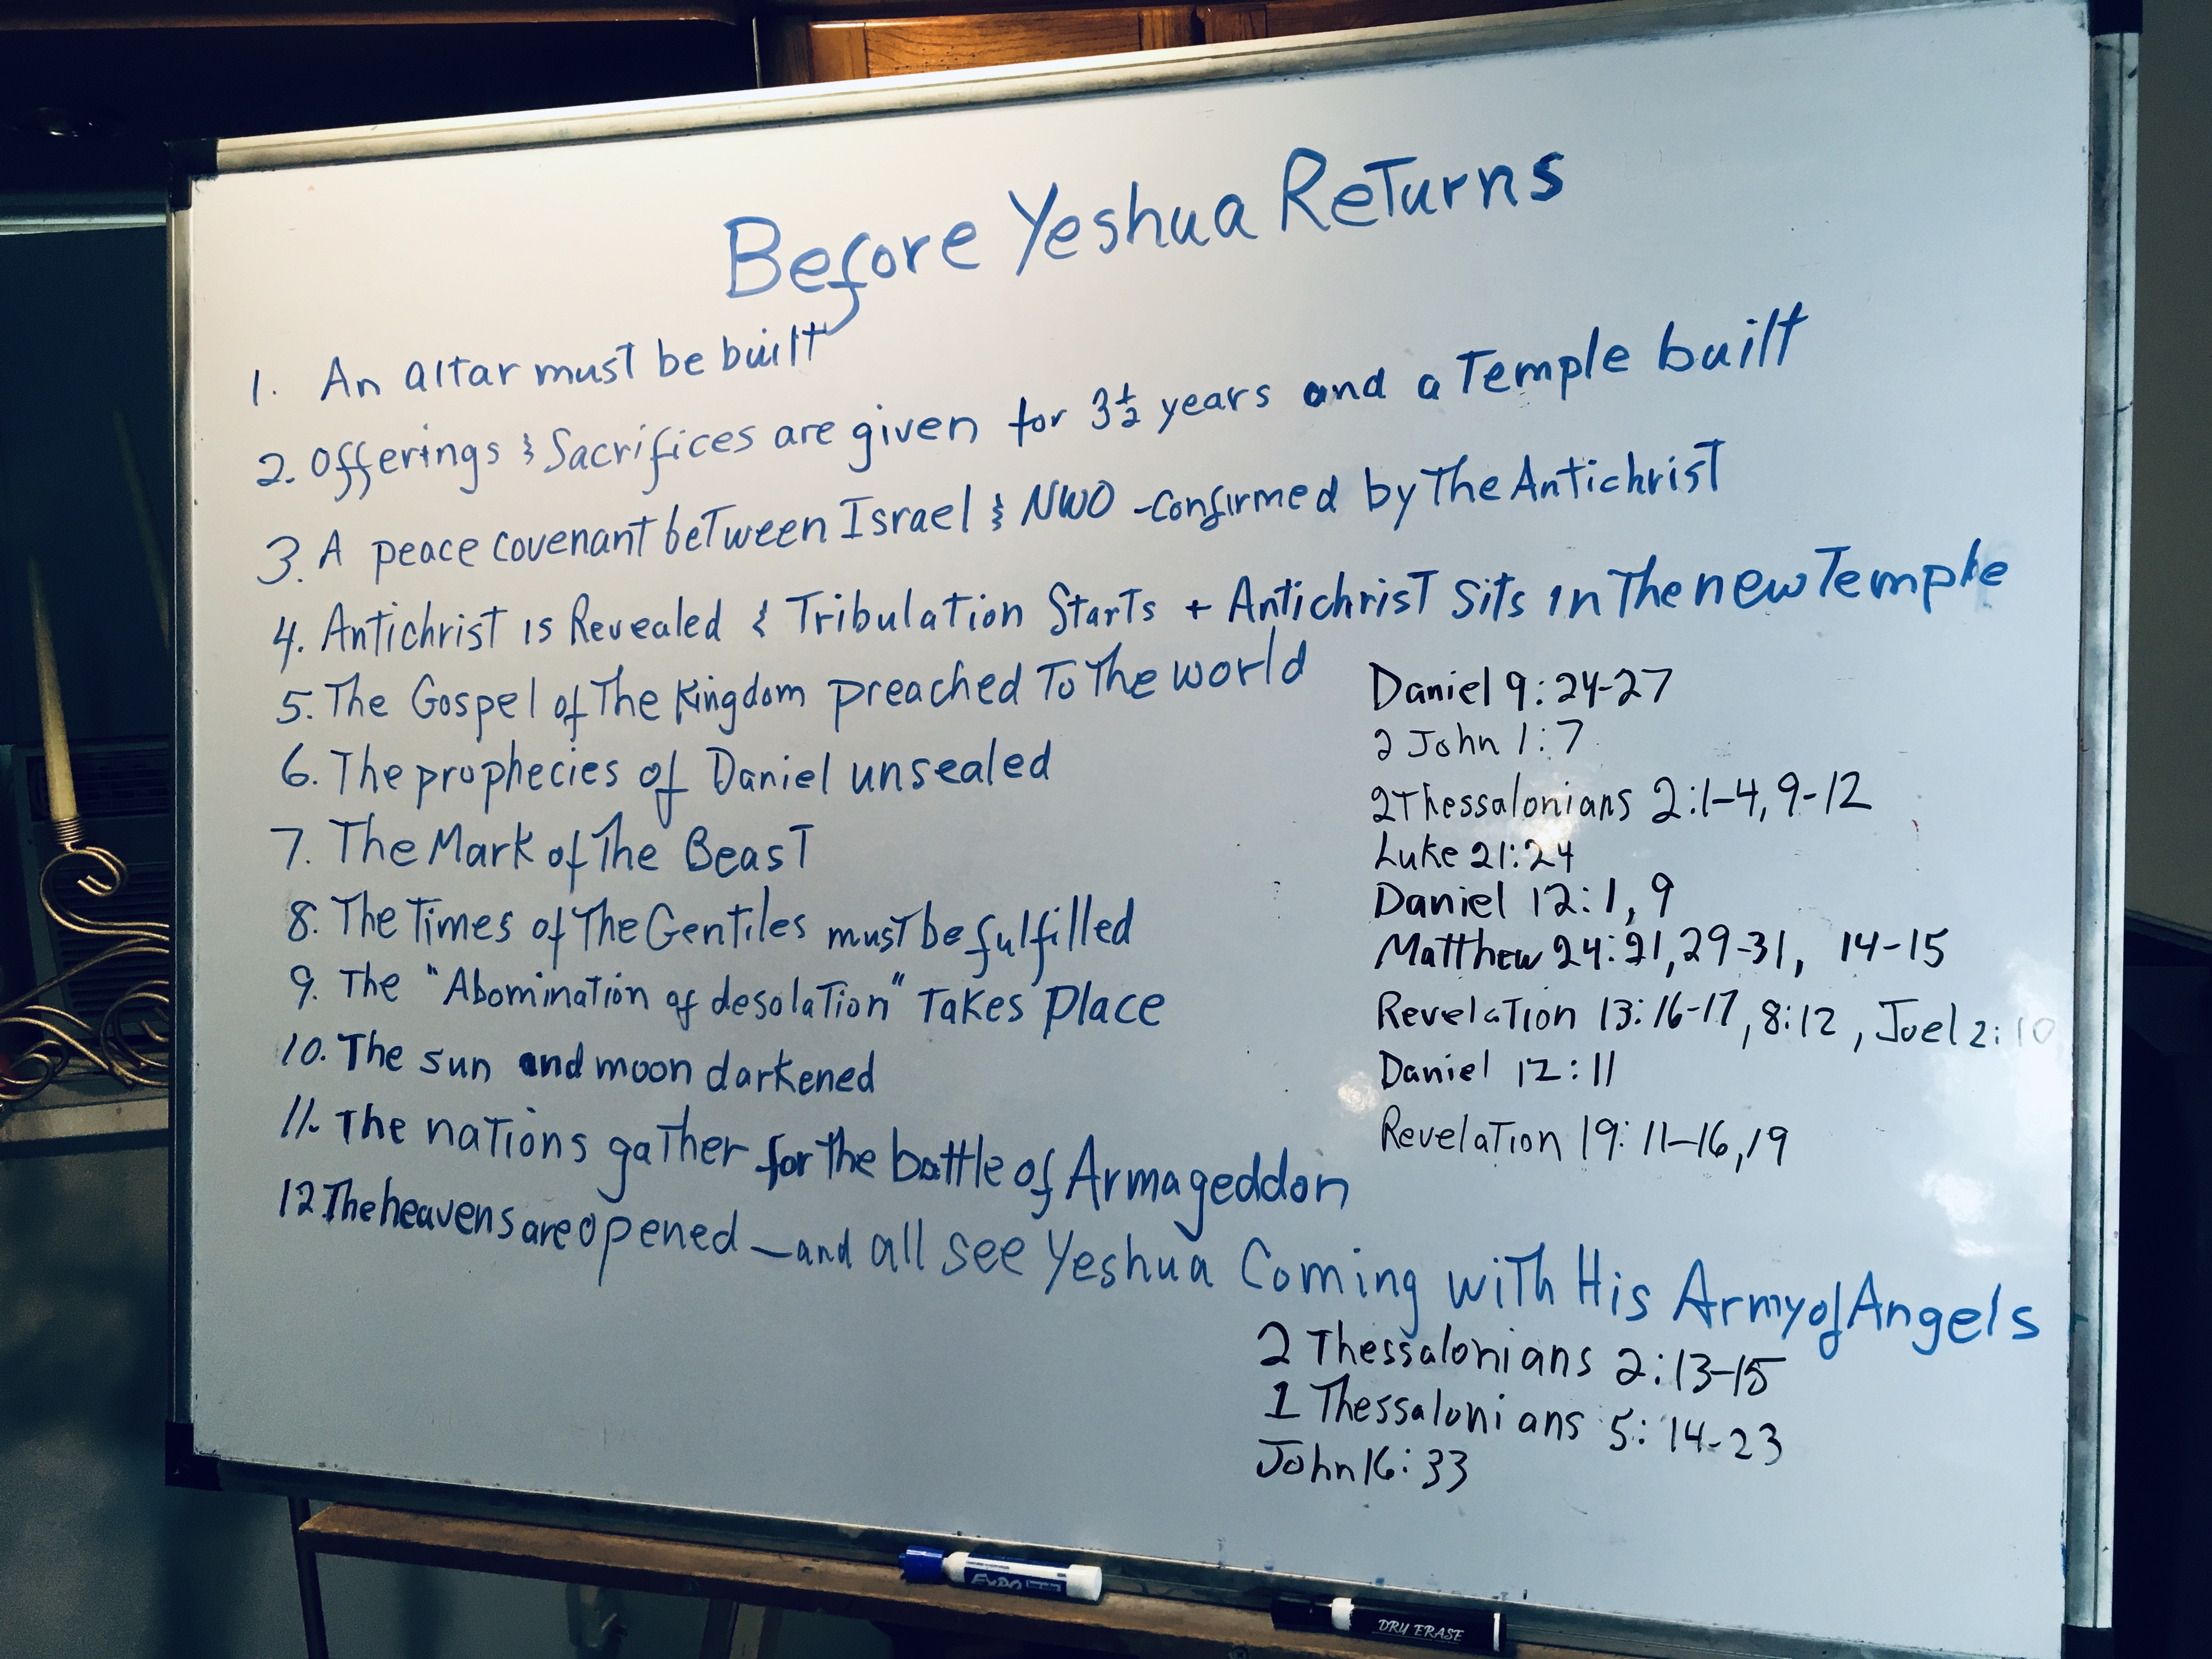 Before Yeshua Returns
1. An altar must be built
2. Offerings & Sacrifices are given for 3½ years and a Temple built
3. A peace covenant between Israel & NWO - Confirmed by The Antichrist
4. Antichrist is Revealed & Tribulation Starts + Antichrist Sits in The new Temple
5. The Gospel of The Kingdom preached To The world
6. The prophecies of Daniel unsealed
7. The Mark of The Beast
8. The Times of The Gentiles must be fulfilled
9. The "Abomination of desolation" Takes Place
10. The sun and moon darkened
11. The nations gather for the battle of Armageddon
12. The heavens are opened - and all see Yeshua Coming with His Army of Angels
Daniel 9:24-27
2 John 1:7
2 Thessalonians 2:1-4, 9-12
Luke 21:24
Daniel 12:1, 9
Matthew 24:21, 29-31, 14-15
Revelation 13:16-17, 8:12, Joel 2:10
Daniel 12:11
Revelation 19:11-16, 19
2 Thessalonians 2:13-15
1 Thessalonians 5:14-23
John 16:33
EXPO
DRY ERASE